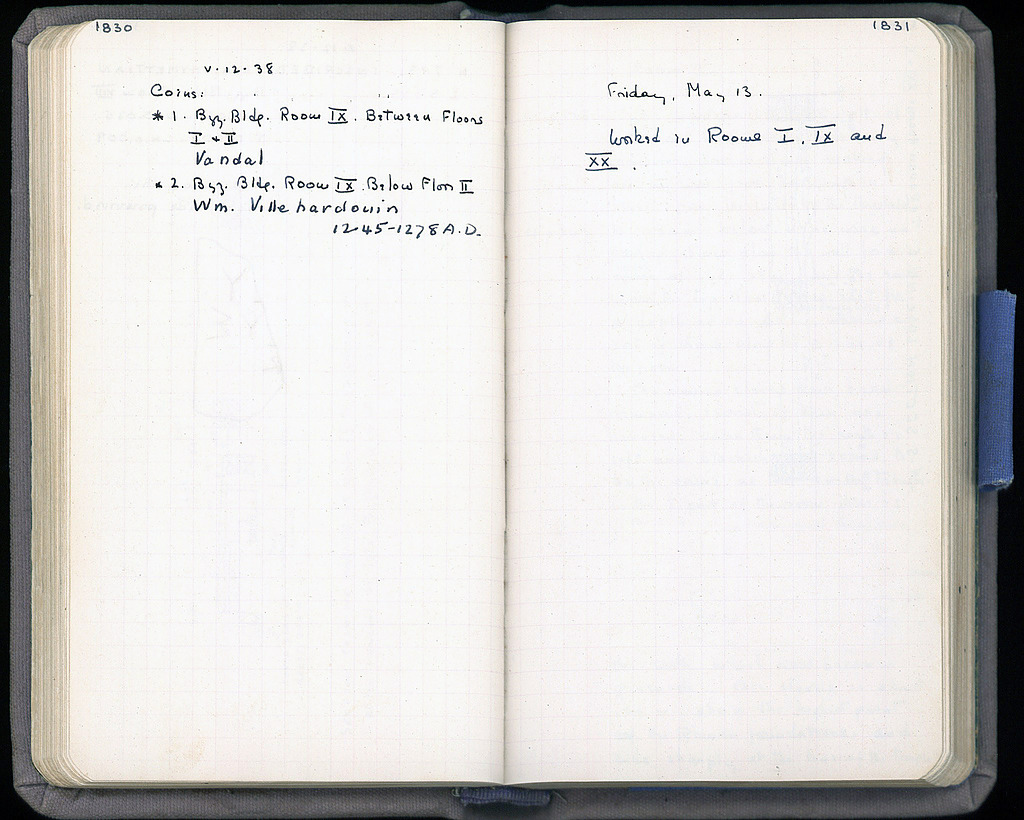 1830
V. 12. 38
Coins:
* 1. Byz. Bldg. Room IX. Between Floors
I + II
Vandal
* 2. Byz. Bldg. Room IX. Below Floor II
Wm. Villehardouin
1245-1278 A.D.
1831
Friday, May 13.
Worked in Rooms I, IX and
XX.